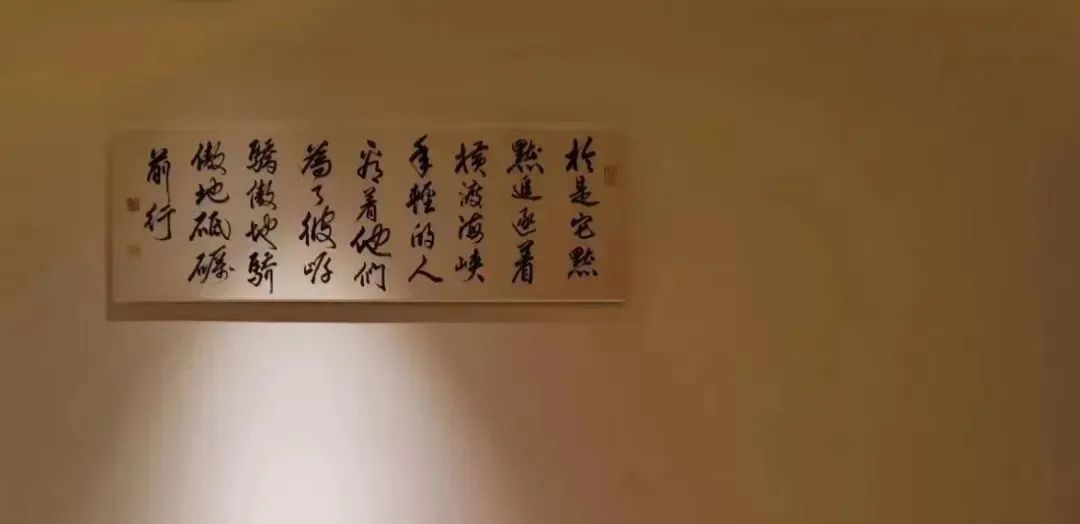 於是它默
默追逐着
横渡海峡
年輕的人
看着他們
為了彼岸
驕傲地驕
傲地砥礪
前行